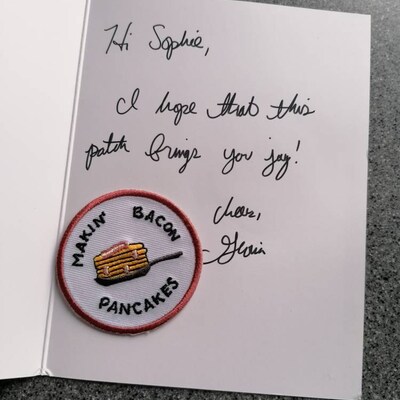 Hi Sophie,
I hope that this
patch brings you joy!
cheers,
- Gloria
MAKIN' BACON
PANCAKES